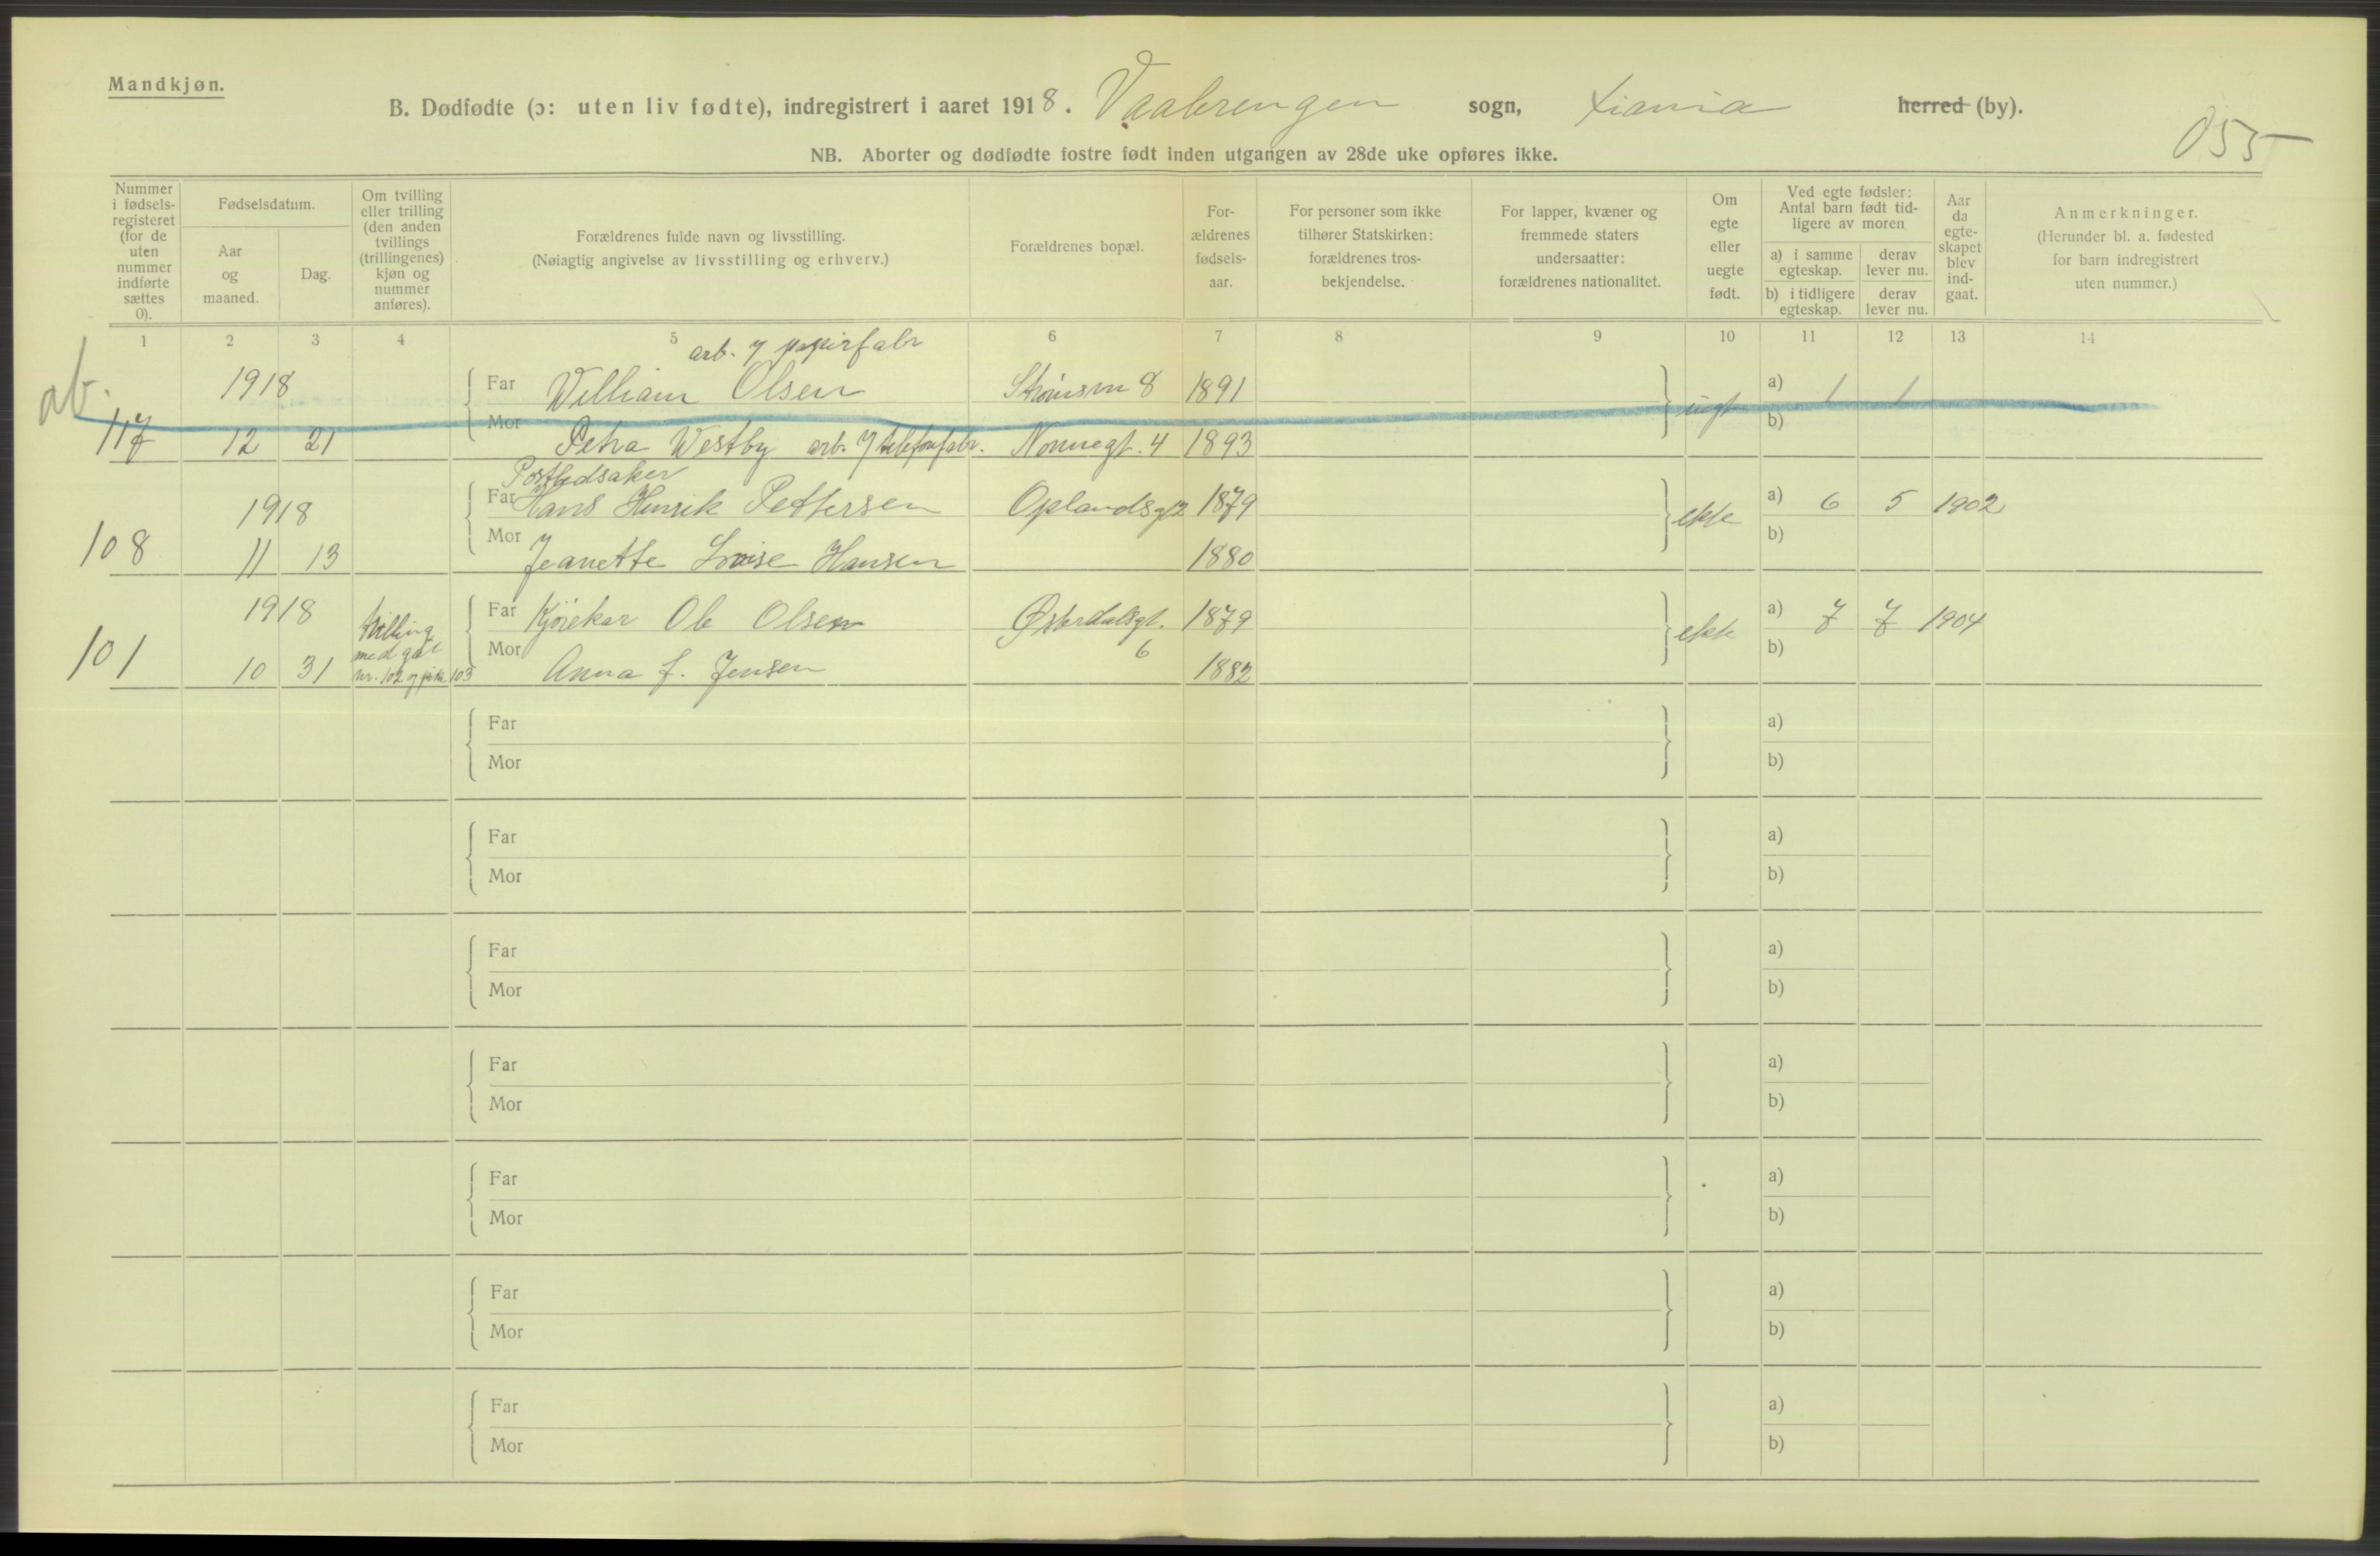 Mandkjøn.
B. Dødfødte (ɔ: uten liv fødte), indregistrert i aaret 1918. Vaalerengen sogn, Xiania herred (by).
055
NB. Aborter og dødfødte fostre født inden utgangen av 28de uke opføres ikke.
Nummer i fødsels-registeret (for de uten nummer indførte sættes 0).
Fødselsdatum.
Aar og maaned.
Dag.
Om tvilling eller trilling (den anden tvillings (trillingenes) kjøn og nummer anføres).
Forældrenes fulde navn og livsstilling.
(Nøiagtig angivelse av livsstilling og erhverv.)
Forældrenes bopæl.
For-ældrenes fødsels-aar.
For personer som ikke tilhører Statskirken: forældrenes tros-bekjendelse.
For lapper, kvæner og fremmede staters undersaatter: forældrenes nationalitet.
Om egte eller uegte født.
Ved egte fødsler: Antal barn født tid-ligere av moren
a) i samme egteskap. derav lever nu.
b) i tidligere egteskap. derav lever nu.
Aar da egte-skapet blev ind-gaat.
Anmerkninger.
(Herunder bl. a. fødested for barn indregistrert uten nummer.)
1 2 3 4 5 6 7 8 9 10 11 12 13 14
ab.
arb. papirfabr
1918 Far William Olsen 8 1891 uegt a) 1 1
117 12 21 Mor Petra Westby arb. telefonfabr. Nonnegt. 4 1893 b)
Postbudsaker
1918 Far Hans Henrik Pettersen Oplandsgt 2 1879 ekte a) 6 5 1902
108 11 13 Mor Jeanette Lovise Hansen 1880 b)
1918 trilling med gut nr. 102 og pike 103 Far Kjørekar Ole Olsen Østerdalsgt. 6 1879 ekte a) 7 7 1904
101 10 31 Mor Anna J. Jensen 1882 b)
Far a)
Mor b)
Far a)
Mor b)
Far a)
Mor b)
Far a)
Mor b)
Far a)
Mor b)
Far a)
Mor b)
Far a)
Mor b)